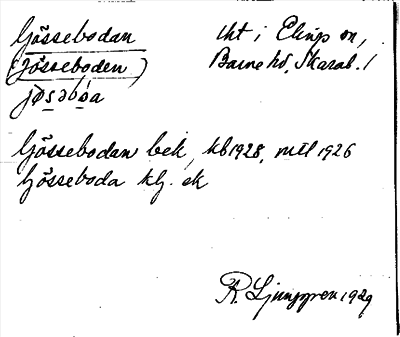 Gössebodan
(Jösseboden)
jøsəbóa
tht i Elings sn,
Barne hd, Skarab. l
Gössebodan bek, kb 1928, mtl 1926
Gösseboda kg. sk
R. Ljunggren 1929